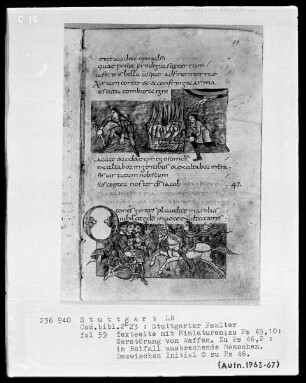 C 10
59
quae posuit prodigia super terram
auferens bella usque ad finem terrae
Arcum conteret & confring& arma
& scuta combur& igni
exaltabor in gentibus & exaltabor in terra
dns uirtutum nobiscum
susceptor noster ds iacob
Omnes gentes plaudite manibus
iubilate do in uoce exultationis
236 940 Stuttgart LB
Cod.bibl.2°23 : Stuttgarter Psalter
fol 59 Textseite mit Miniaturen; zu Ps 49,10:
Zerstörung von Waffen. Zu Ps 46,2 :
in Beifall ausbrechende Menschen.
Dazwischen Initial O zu Ps 46.
(Aufn.1963-67)